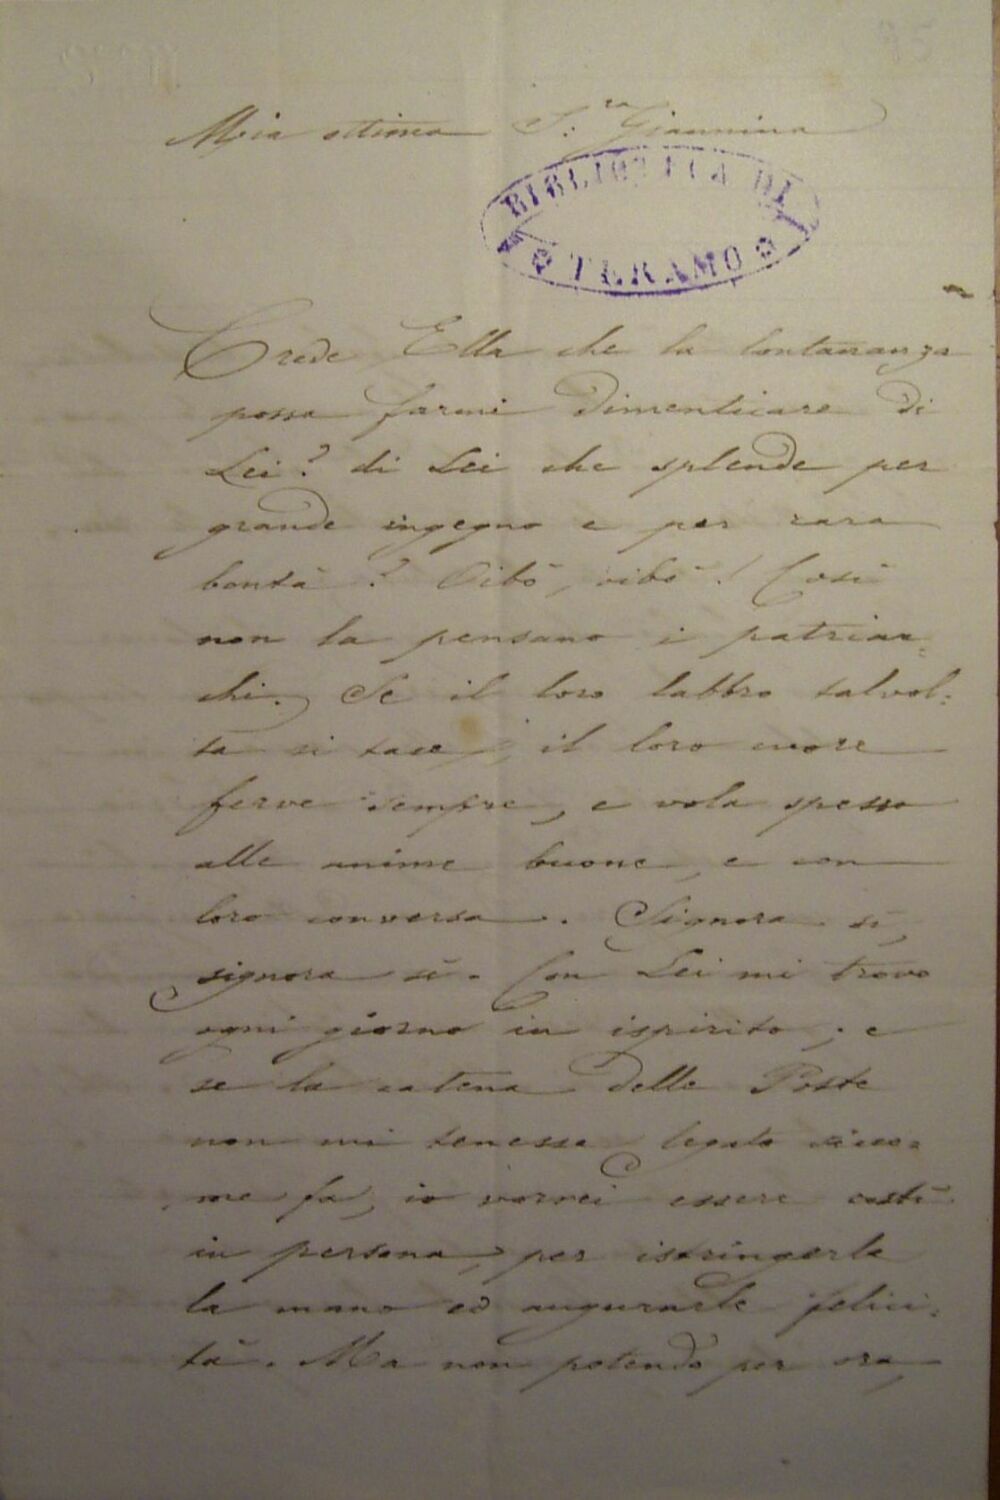 75
Mia ottima S.ra Giannina
BIBLIOTECA DI
TERAMO
Crede Ella che la lontananza
possa farmi dimenticare di
Lei? di Lei che splende per
grande ingegno e per rara
bontà? Oibò, oibò! Così
non la pensano i patriar=
chi. Se il loro labbro talvol=
ta si tace, il loro cuore
ferve sempre, e vola spesso
alle anime buone, e con
loro conversa. Signora sì,
signora sì. Con Lei mi trovo
ogni giorno in ispirito; e
se la catena delle Poste
non mi tenesse legato sicco=
me fa, io vorrei essere costì
in persona, per istringerle
la mano ed augurarle felici=
tà. Ma non potendo per ora,